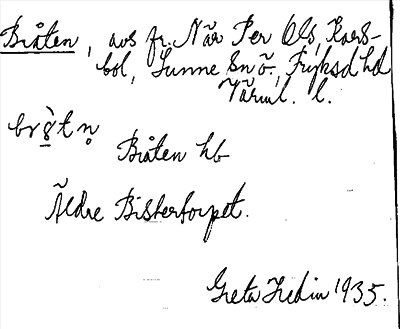 Bråten, avs. fr. När Per Ols, Kars-
bol, Sunne sn o., Fryksd hd
Värml. l.
bròtn̥
Bråten hb
Äldre Bistertorpet.
Greta Hedin 1935.